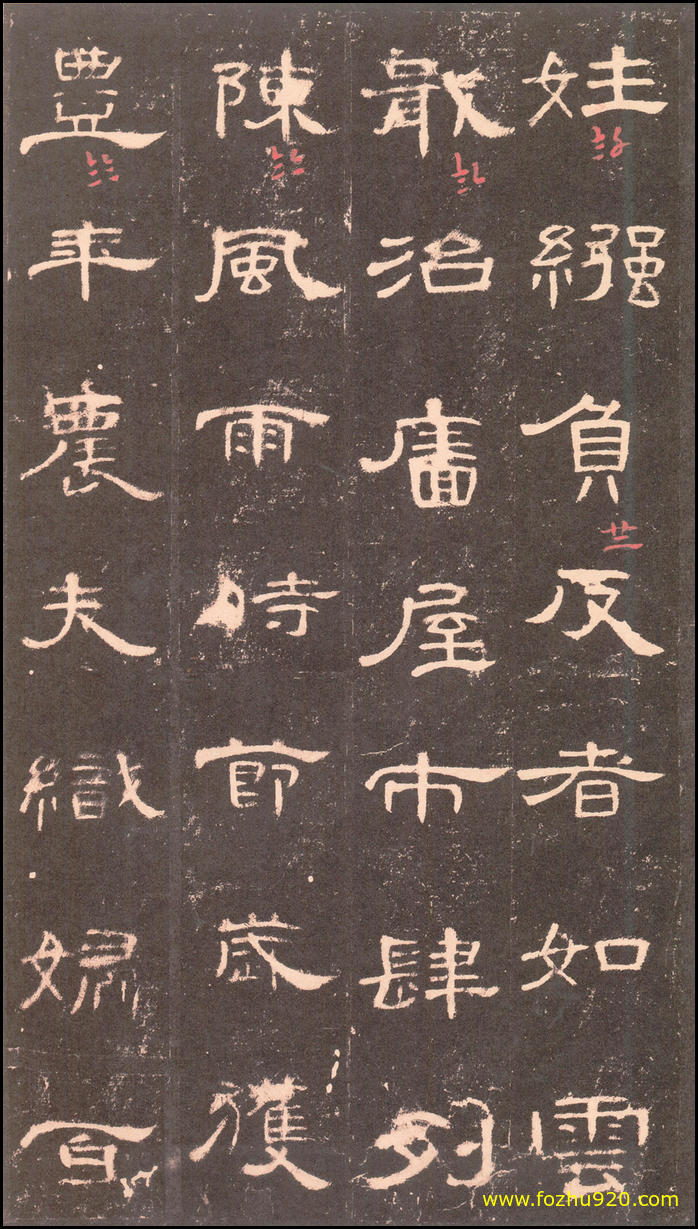 姓繈負反者如雲
戢治廧屋市肆列
陳風雨時節歲獲
豐年農夫織婦百
www.fozhu920.com